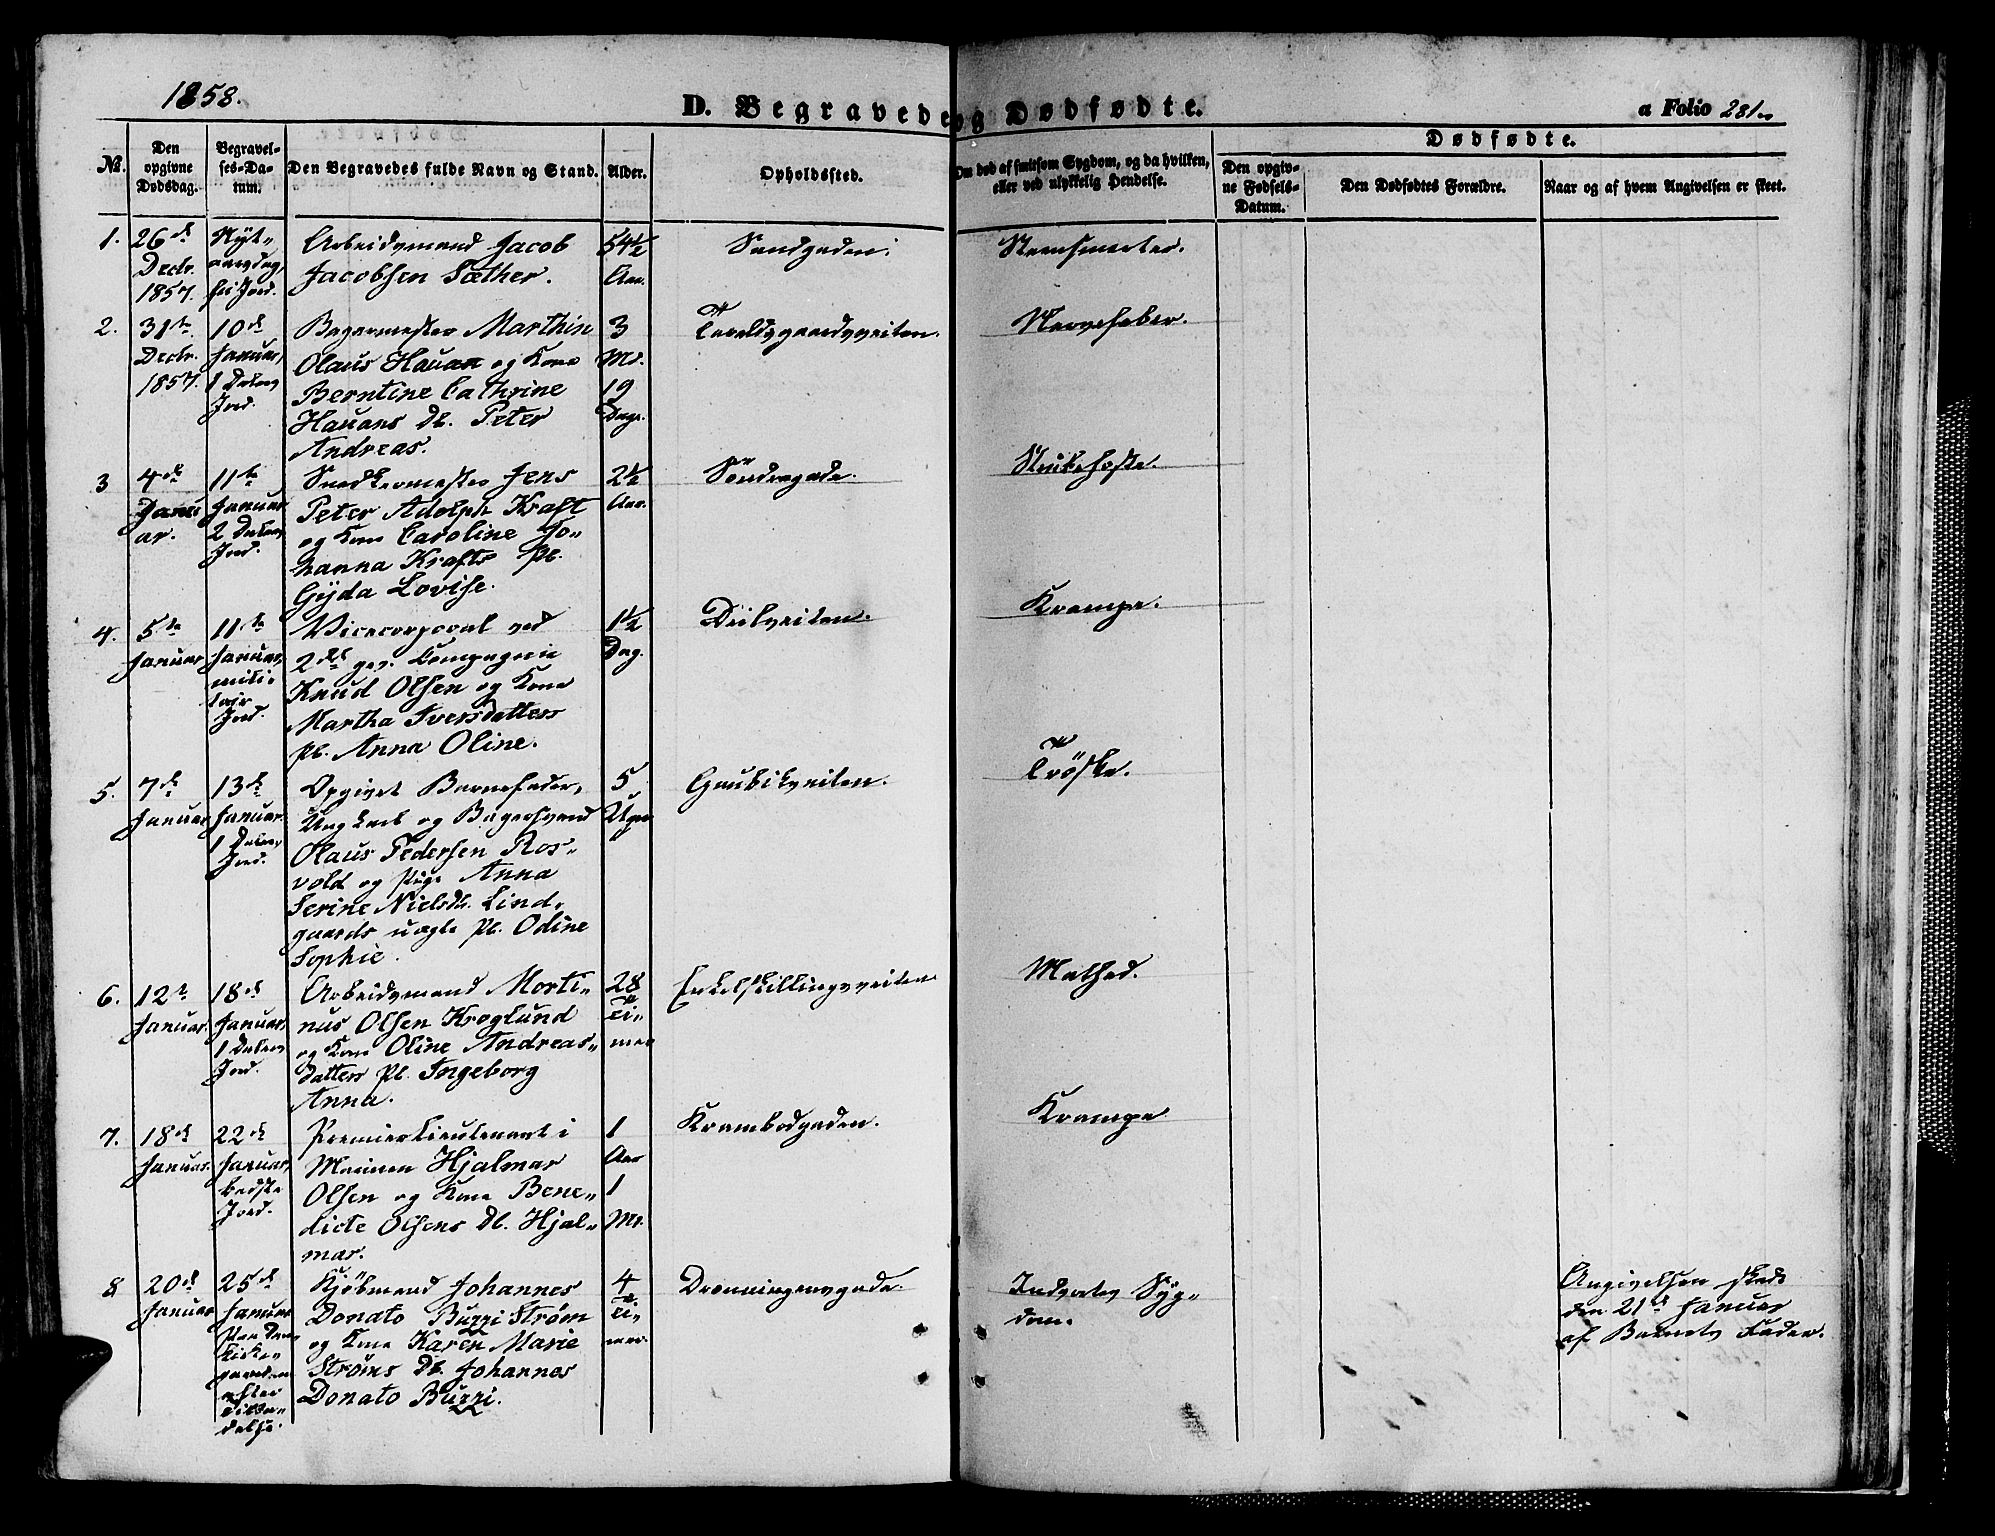 1858.
D. Begravede og Dødfødte.
a Folio 281
No.
Den opgivne Dødsdag.
Begravelses-Datum.
Den Begravedes fulde Navn og Stand.
Alder.
Opholdssted.
Om død af smitsom Sygdom, og da hvilken, eller ved ulykkelig Hendelse.
Dødfødte.
Den opgivne Fødsels-Datum.
Den Dødfødtes Forældre.
Naar og af hvem Angivelsen er skeet.
1.
26de
Decbr.
1857.
Nyt-
aarsdag,
fri Jord.
Arbeidsmand Jacob
Jacobsen Sæther.
54½
Aar.
Sandgaden.
Steensmerter.
2.
31te
Decbr.
1857.
10de
Januar,
1 Dalers
Jord.
Bagermester Marthin
Olaus Hauan og Kone
Berntine Cathrine
Hauans Db. Peter
Andreas.
3
Md.
19
Dage.
Taraldsgaardsveiten.
Nervefeber.
3
4de
Janu
ar.
11te
Januar
2 Dalers
Jord.
Snedkermester Jens
Peter Adolph Kraft
og Kone Caroline Jo-
hanna Krafts Pb.
Gyda Lovise.
2½
Aar.
Søndregade.
Strubehoste.
4.
5te
Januar
11te
Januar,
mili-
tair
Jord.
Vicecorporal ved
2det gev. Compagnie
Knud Olsen og Kone
Martha Iversdatters
Pb. Anna Oline.
1½
Dag.
Krampe.
5.
7de
Januar
13de
Januar.
1 Dalers
Jord.
Opgivet Barnefader,
Ungkarl og Bagersvend
Olaus Pedersen Ros-
vold og Pige Anna
Serine Nielsdr. Lind-
gaards uægte Pb. Odine
Sophie.
5
Uger
Gaubækveiten.
Trøske.
6.
12te
Januar.
18de
Januar,
1 Dalers
Jord.
Arbeidsmand Morti-
nus Olsen Kroglund
og Kone Oline Andreas-
datters Pb. Ingeborg
Anna.
28
Ti-
mer
Enkelskillingsveiten
Mathed.
7.
18de
Januar.
22de
Januar,
bedste
Jord.
Premierlieutenant i
Marinen Hjalmar
Olsen og Kone Bene-
dicte Olsens Db. Hjal-
mar.
1
Aar
1
Md.
Krambodgaden.
Krampe
8
20de
Januar
25de
Januar
paa Dom
kirke-
gaarden
efter
Tilla-
delse.
Kjøbmand Johannes
Donato Buzzi Strøm
og Kone Karen Marie
Strøms Db. Johannes
Donato Buzzi.
4
Ti-
mer.
Dronningensgade.
Indvortes Syg-
dom.
Angivelsen skede
den 21de Januar
af Barnets Fader.